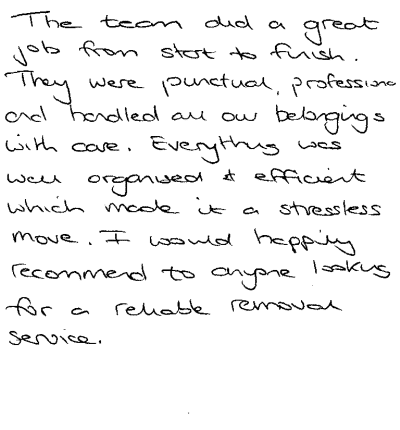 The team did a great
job from start to finish.
They were punctual, professional
and handled all our belongings
with care. Everything was
well organised & efficient
which made it a stressless
move. I would happily
recommend to anyone looking
for a reliable removal
service.